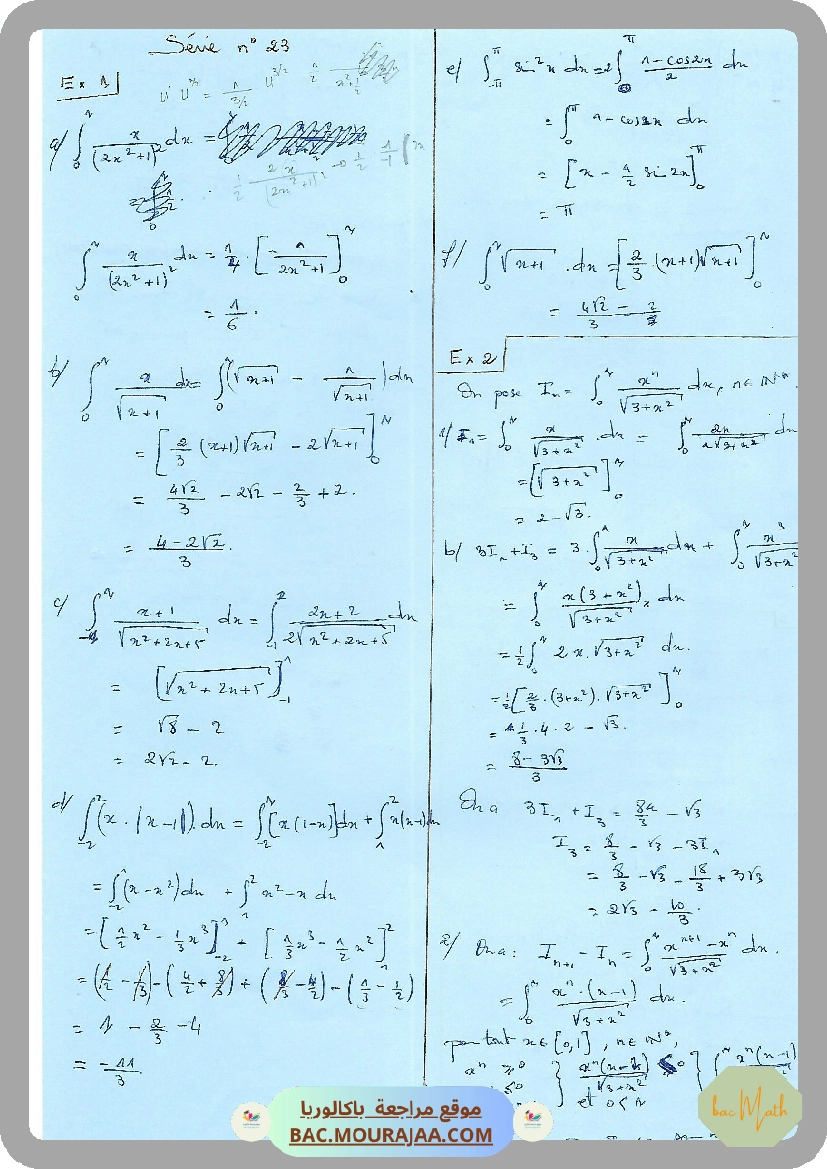 Série n° 23
Ex 1
a/ ∫₀¹ x/(2x²+1)² dx =
∫₀¹ x/(2x²+1)² dx = 1/4 · [-1/(2x²+1)]₀¹
= 1/6 .
b/ ∫₀¹ x/√(x+1) dx = ∫₀¹ (√(x+1) - 1/√(x+1)) dx
= [2/3 (x+1)√(x+1) - 2√(x+1)]₀¹
= 4√2/3 - 2√2 - 2/3 + 2 .
= (4-2√2)/3 .
c/ ∫₋₁¹ (x+1)/√(x²+2x+5) dx = ∫₋₁¹ (2x+2)/(2√(x²+2x+5)) dx
= [√(x²+2x+5)]₋₁¹
= √8 - 2
= 2√2 - 2.
d/ ∫₋₂² (x · |x-1|) dx = ∫₋₂¹ [x(1-x)] dx + ∫₁² x(x-1) dx
= ∫₋₂¹ (x-x²) dx + ∫₁² x²-x dx
= [1/2 x² - 1/3 x³]₋₂¹ + [1/3 x³ - 1/2 x²]₁²
= (1/2 - 1/3) - (4/2 + 8/3) + (8/3 - 4/2) - (1/3 - 1/2)
= 1 - 2/3 - 4
= -11/3 .
e/ ∫₋π^π sin²x dx = 2∫₀^π (1-cos2x)/2 dx
= ∫₀^π 1-cos2x dx
= [x - 1/2 sin 2x]₀^π
= π
f/ ∫₀¹ √(x+1) . dx = [2/3 · (x+1)√(x+1)]₀¹
= 4√2/3 - 2/3
Ex 2
On pose Iₙ = ∫₀¹ xⁿ/√(3+x²) dx, n ∈ IN* .
1/ I₁ = ∫₀¹ x/√(3+x²) . dx = ∫₀¹ 2x/(2√(3+x²)) dx
= [√(3+x²)]₀¹
= 2-√3 .
b/ 3I₁+I₃ = 3·∫₀¹ x/√(3+x²) dx +
= ∫₀¹ x(3+x²)/√(3+x²) dx
= 1/2 ∫₀¹ 2x·√(3+x²) dx.
= 1/2 [2/3 · (3+x²)·√(3+x²)]₀¹
= 1/3 · 4 · 2 - √3 .
= (8-3√3)/3
On a 3I₁ + I₃ = 8/3 - √3
I₃ = 8/3 - √3 - 3I₁
= 8/3 - √3 - 18/3 + 3√3
= 2√3 - 10/3 .
2/ On a : Iₙ₊₁ - Iₙ = ∫₀¹ (xⁿ⁺¹-xⁿ)/√(3+x²) dx .
= ∫₀¹ xⁿ·(x-1)/√(3+x²) dx.
pour tout x ∈ [0,1], n ∈ IN*,
xⁿ ≥ 0 } xⁿ(x-1)/√(3+x²) ≤ 0
≤ 0 et 0 < 1
bac Math
موقع مراجعة باكالوريا
BAC.MOURAJAA.COM